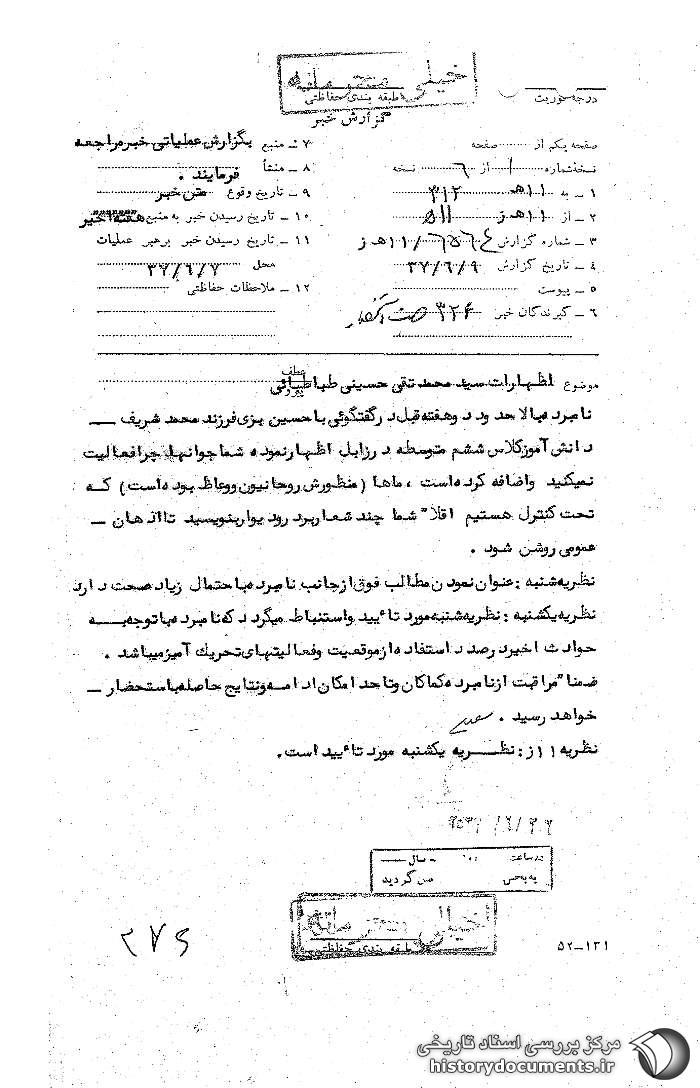 خیلی محرمانه
طبقه بندی حفاظتی
درجه فوریت
گزارش خبر
صفحه یکم از صفحه
نسخه شماره ۱ از ۶ نسخه
۱ ـ به ۱۱هـ ۳۱۲
۲ ـ از ۱۱هـ ز ۵۱۱
۳ ـ شماره گزارش ۱۱/۶۵۶۴هـ ز
۴ ـ تاریخ گزارش ۳۷/۶/۹
۵ ـ پیوست
۶ ـ گیرندگان خبر ۳۲۶
۷ ـ منبع بگزارش عملیاتی خبرمراجعه
۸ ـ منشأ فرمایند .
۹ ـ تاریخ وقوع متن خبر
۱۰ ـ تاریخ رسیدن خبر به منبع هفته اخیر
۱۱ ـ تاریخ رسیدن خبر برهبر عملیات
محل ۳۷/۶/۷
۱۲ ـ ملاحظات حفاظتی
موضوع اظهارات سید محمد تقی حسینی طباطبائی
عطف
پیرو
نامبرده بالا حدود دوهفته قبل درگفتگوئی باحسین بزی فرزند محمد شریف ـــ
دانش آموزکلاس ششم متوسطه درزابل اظهارنموده شماجوانها چرافعالیت
نمیکنید واضافه کرده است ، ماها (منظورش روحانیون ووعاظ بوده است) که
تحت کنترل هستیم اقلا" شما چند شعاربرد رود یواربنویسید تااذهان ـ
عمومی روشن شود .
نظریه شنبه : عنوان نمودن مطالب فوق ازجانب نامبرده باحتمال زیاد صحت دارد
نظریه یکشنبه : نظریه شنبه مورد تأیید واستنباط میگردد که نامبرده باتوجه بـــه
حوادث اخیردرصدد استفاده ازموقعیت وفعالیتهای تحریك آمیزمیباشد .
ضمنا" مراقبت ازنامبرده کماکان وتاحد امکان ادامه ونتایج حاصله باستحضار ـ
خواهد رسید .
نظریه ۱۱ز : نظـــریه یکشنبه مورد تأیید است .
در ساعت سال
به بخش گردید
خیلی محرمانه
طبقه بندی حفاظتی
۲۷۶
۵۲ــ۱۳۱
مرکز بررسی اسناد تاریخی
historydocuments.ir